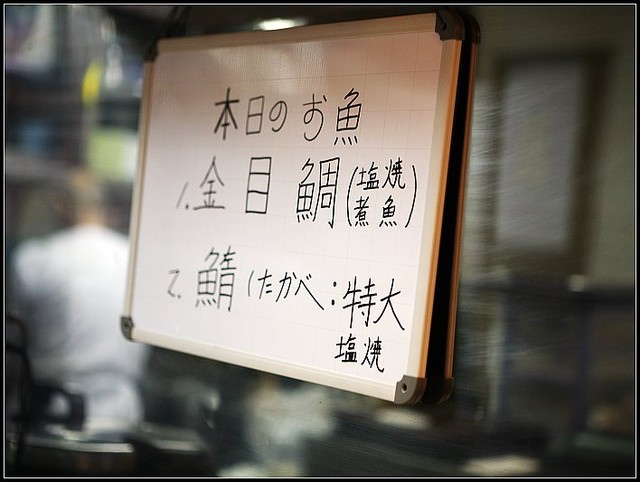 本日のお魚
1. 金目鯛(塩焼
煮魚)
2. 鯖(たかべ:特大
塩焼